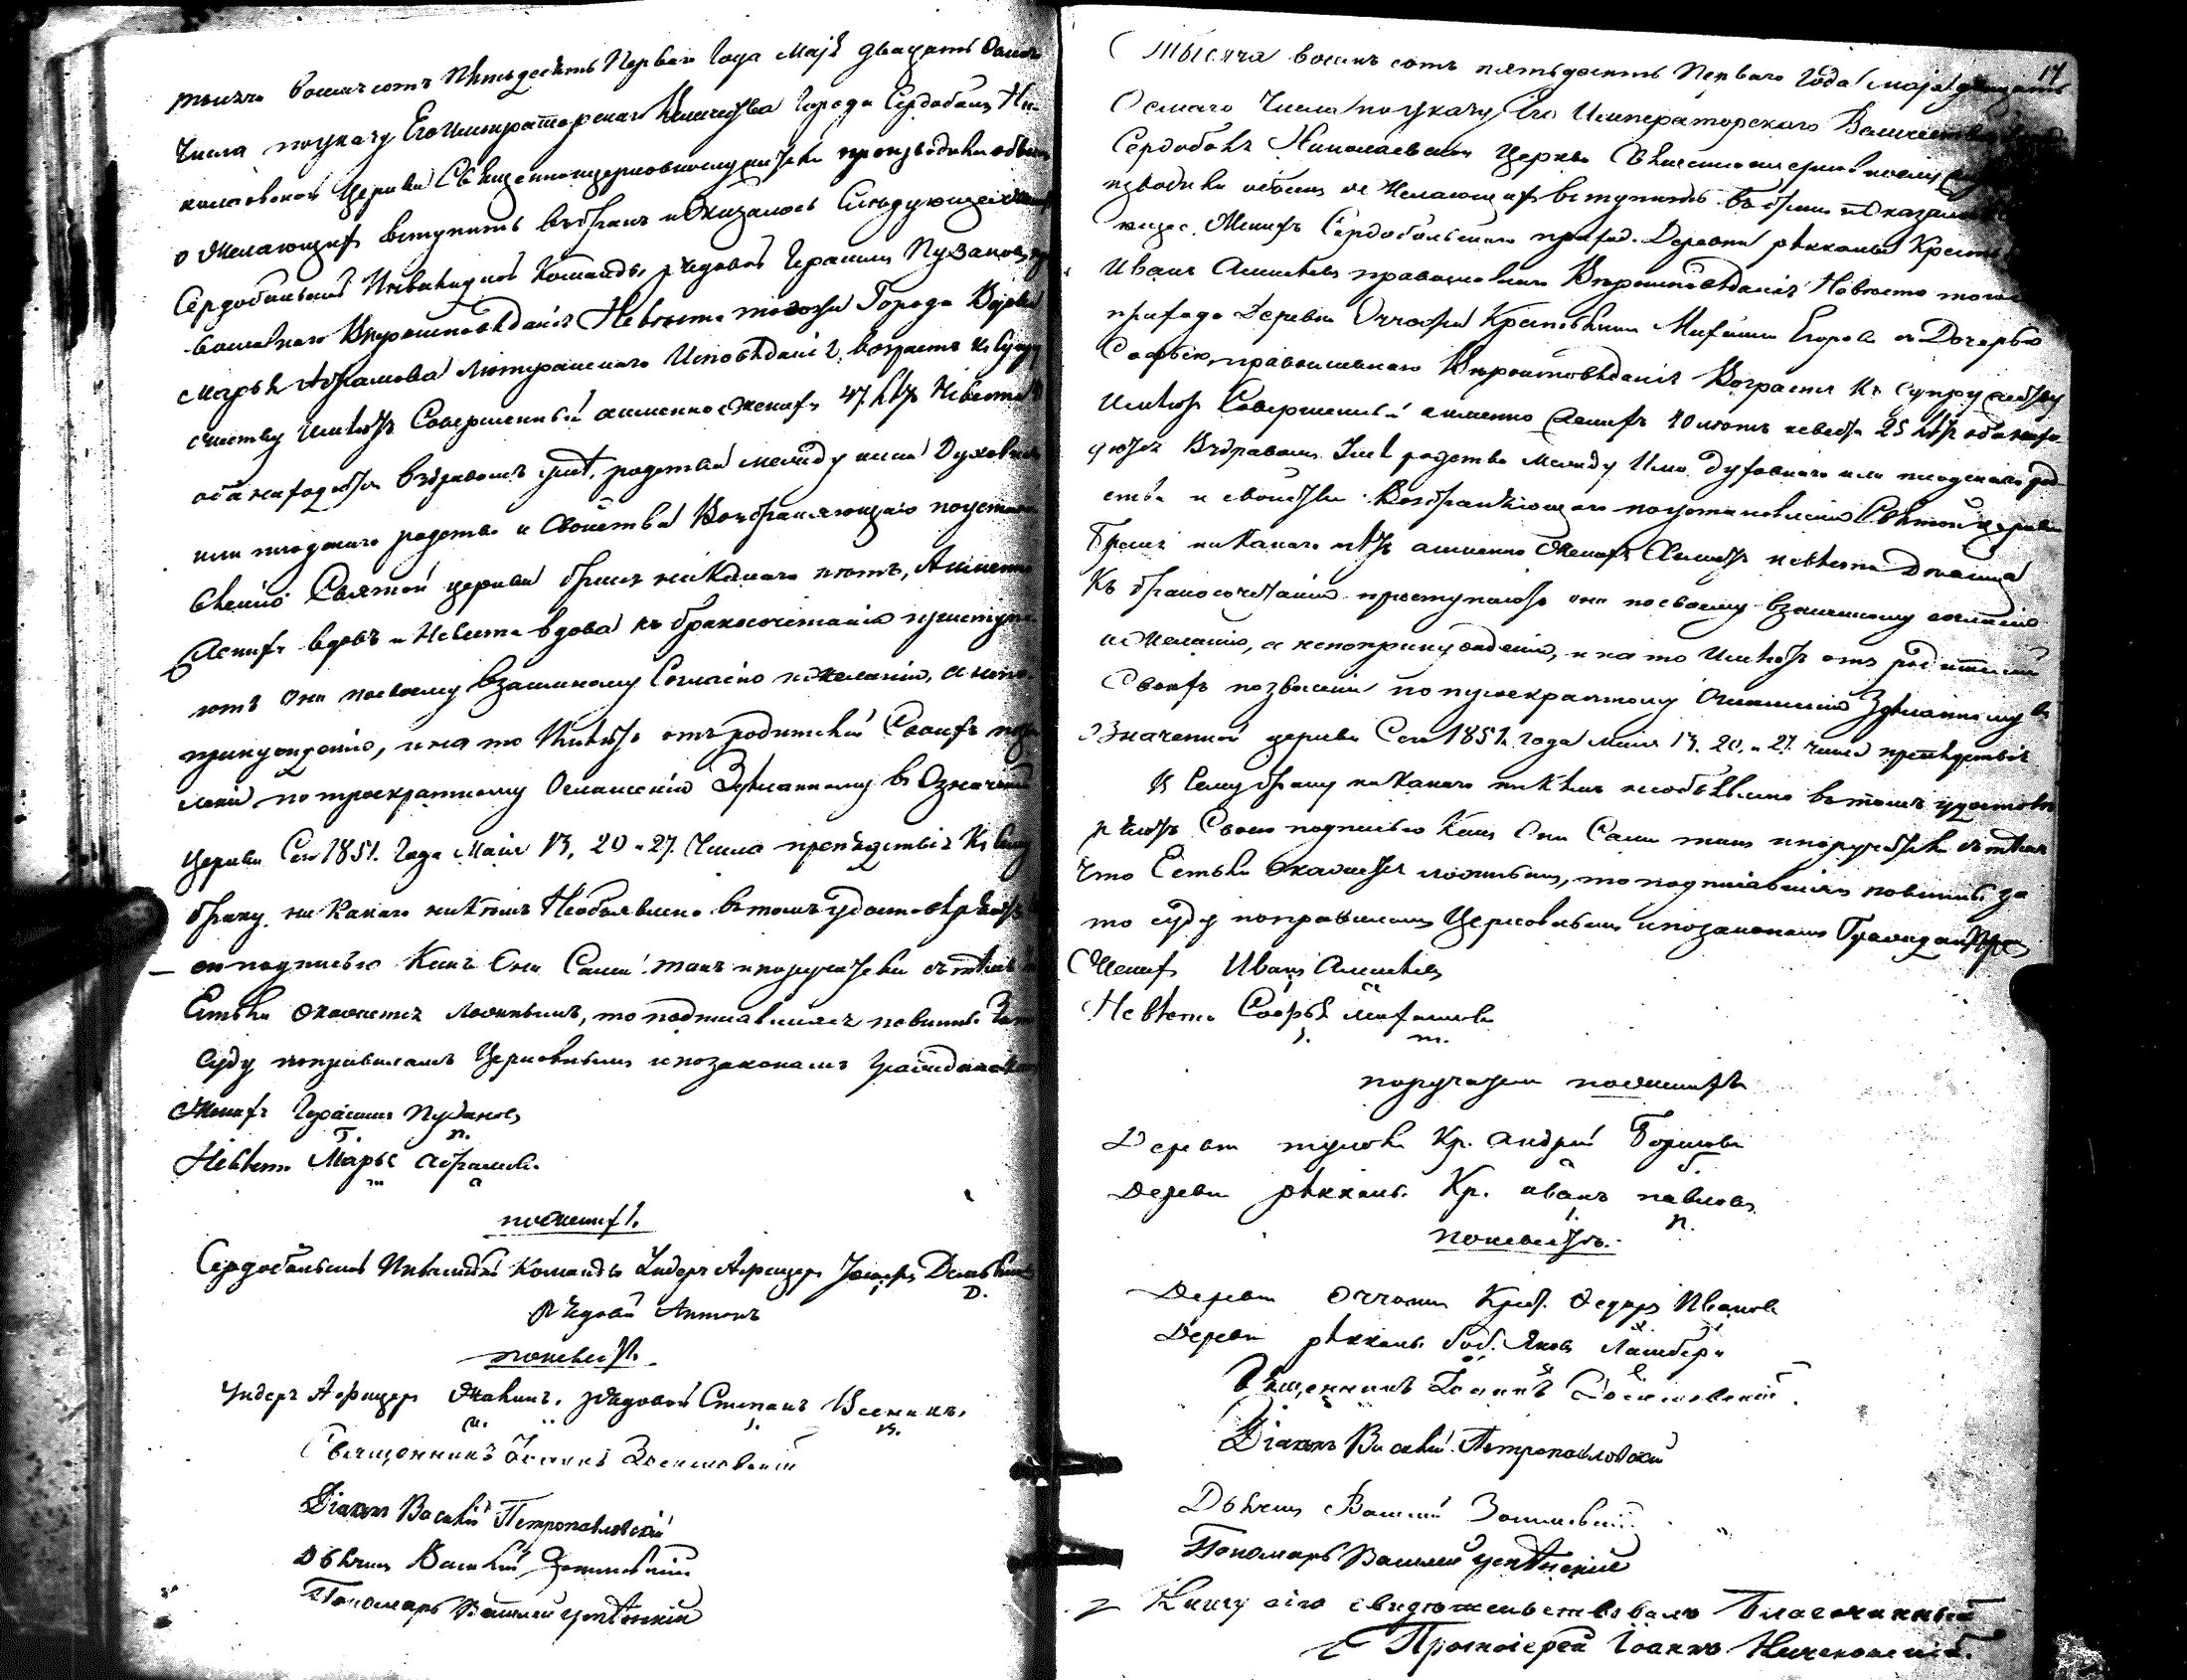 тысяча восемьсотъ Пятьдесятъ Перваго Года Маія двадцать Осьмаго
Числа поуказу Его Императорскаго Величества Города Сердоболя Ни-
колаевской Церкви Священноцерковнослужители производили обыскъ
о Желающихъ вступить въ бракъ и Оказалось Слѣдующее Женихъ
Сердобольской Инвалидной Команды рядовой Герасимъ Пузановъ,
Вѣроисповѣданія Невѣста тогожъ Города Вдова
Марья Абрамова Лютеранскаго Исповѣданія, возрастъ къ Супру
жеству Имѣютъ Совершенный аименно Женихъ 47 лѣтъ Невѣста
оба находятся въздравомъ умѣ, родства между ними Духовнаго
или плодскаго родства и Свойства Возбраняющаго поустано
вленію Святой церкви бракъ никакаго нѣтъ, Аименно
Женихъ вдовъ и Невѣста вдова къ бракосочетанію приступа
ютъ Они посвоему взаимному Согласію и желанію, а непо
принужденію, и на то Имѣютъ отъ родителей Своихъ позво
леніе потроекратному Оглашенію Здѣланному въ Означенной
Церкви Сего 1851. Года Маія 13, 20 и 27. Числа препядствія Къ Сему
браку ни Какого никѣмъ Необъявлено вътомъ удостовѣряютъ
подписью Какъ Они Сами такъ и поручатели съ тѣмъ
Естьли окажется ложнымъ, то подписавшіяся повинны Зато
Суду поправиламъ Церковнымъ и позаконамъ Гражданскимъ
Женихъ Герасимъ Пузановъ
Г. П.
Невѣста Марья Абрамова
м а
поженихѣ.
Сердобольской Инвалидной Команды Ундеръ Афицеръ
Д.
Рядовой Антонъ
поневѣстѣ.
Ундеръ Афицеръ рядовой Степанъ
Священникъ Іоаннъ
Діаконъ Василій Петропавловскій
Дьячекъ Василій
Пономарь Василій Успѣнскій
17
Тысяча восемь сотъ пятьдесятъ Перваго Года Маія двадцать
Осьмаго Числа поуказу Его Императорскаго Величества
Сердоболя Николаевской Церкви Священноцерковнослу
изводили обыскъ о Желающихъ вступить въ бракъ и Оказало
ющее. Женихъ Сердобольскаго приход. Деревни рѣккалы Крестья
Иванъ Алексѣевъ православнаго Вѣроисповѣданія Невѣста того
прихода Деревни Крестьянина Михаила Егорова Дочерью
Софьею, православнаго Вѣроисповѣданія Возрастъ Къ Супружеству
Имѣютъ Совершенный аименно Женихъ 20 лѣтъ невѣста 25 лѣтъ оба нахо
дятся Въздравомъ Умѣ родства Между Ими Духовнаго или плодскаго род
ства и свойства Возбраняющаго поустановленію Святой церкви
Бракъ никакаго нѣтъ аименно Женихъ Холостъ невѣста Дѣвица
Къ бракосочетанію приступаютъ они посвоему взаимному согласію
и Желанію, а непопринужденію, и на то Имѣютъ отъ родителей
Своихъ позволеніе потроекратному Оглашенію Здѣланному въ
Означенной церкви Сего 1851. года Маія 13. 20. и 27. числа препядствія
К Сему браку никакаго никѣмъ необъявлено вътомъ удостовѣ
ряютъ Своею подписью Какъ Они Сами такъ и поручатели съ тѣмъ
Что Естьли Окажется ложнымъ, то подписавшіяся повинны за
то суду поправиламъ Церковнымъ и позаконамъ Гражданскимъ
Женихъ Иванъ Алексѣевъ
Невѣста Софья Михаилова
поручатели поженихѣ
Деревни тулола Кр. Андрей
Деревни рѣккалы. Кр. иванъ павловъ
п.
поневѣстѣ.
Деревни Крест. Ѳедоръ Ивановъ
Деревни рѣккалы Яковъ
Священникъ Іоаннъ
Діаконъ Василій Петропавловскій
Дьячекъ Василій
Пономарь Василій Успѣнскій
Книгу сію свидѣтельствовалъ Благочинный
Протоіерей Іоаннъ